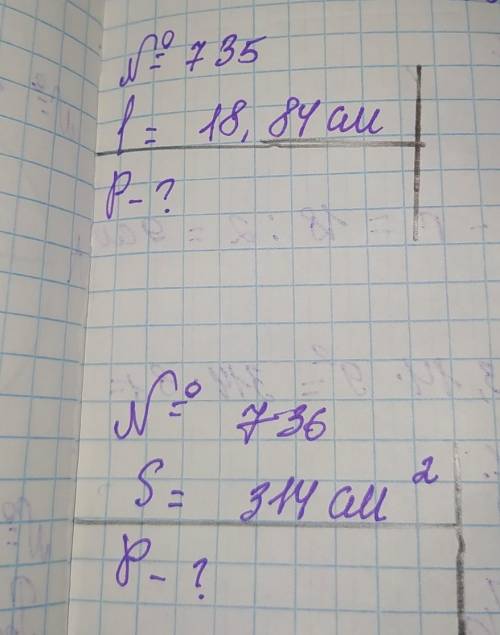 № 735
l = 18,84 см
P - ?
№ 736
S = 314 см²
P - ?